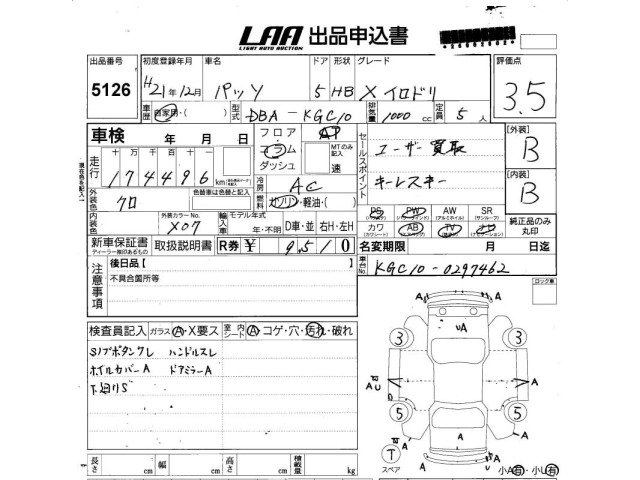 LAA 出品申込書
LIGHT AUTO AUCTION
出品番号 5126
初度登録年月 H21年12月
車名 パッソ
ドア 5
形状 HB
グレード X イロドリ
評価点 3.5
車歴 自家用・( )
型式 DBA-KGC10
排気量 1000 cc
定員 5 人
車検 年 月 日
フロア コラム ダッシュ
AT
MTのみ記入 速
セールスポイント
ユーザー買取
キーレスキー
【外装】 B
【内装】 B
走行 十 万 千 百 十
174496 km
現在色を記入
外装色 クロ
色替車は色替と記入
冷房 AC
燃料 ガソリン・軽油・( )
内装色
外装カラーNo. X07
輸入車 モデル年式 年・不明
D車・並 右H・左H
PS パワステ
PW パワーウインド
AW アルミホイル
SR サンルーフ
カワ レザーシート
AB エアバッグ
TV
ナビ
純正品のみ丸印
新車保証書 ディーラー印のあるもの
取扱説明書
R券 ¥ 9510
名変期限 月 日迄
車台No. KGC10-0297462
ロック車
注意事項
後日品〔 〕
不具合箇所等
検査員記入 ガラス A・X要ス
室内シート A・コゲ・穴・汚れ・破れ
Sノブボタンクレ ハンドルスレ
ホイルカバーA ドアミラーA
下廻りS
3 3
UA
A A
A U A
A
5 5
A A
T スペア
A A
小A有・小U有
長さ cm 幅 cm 高さ cm 積載量 kg